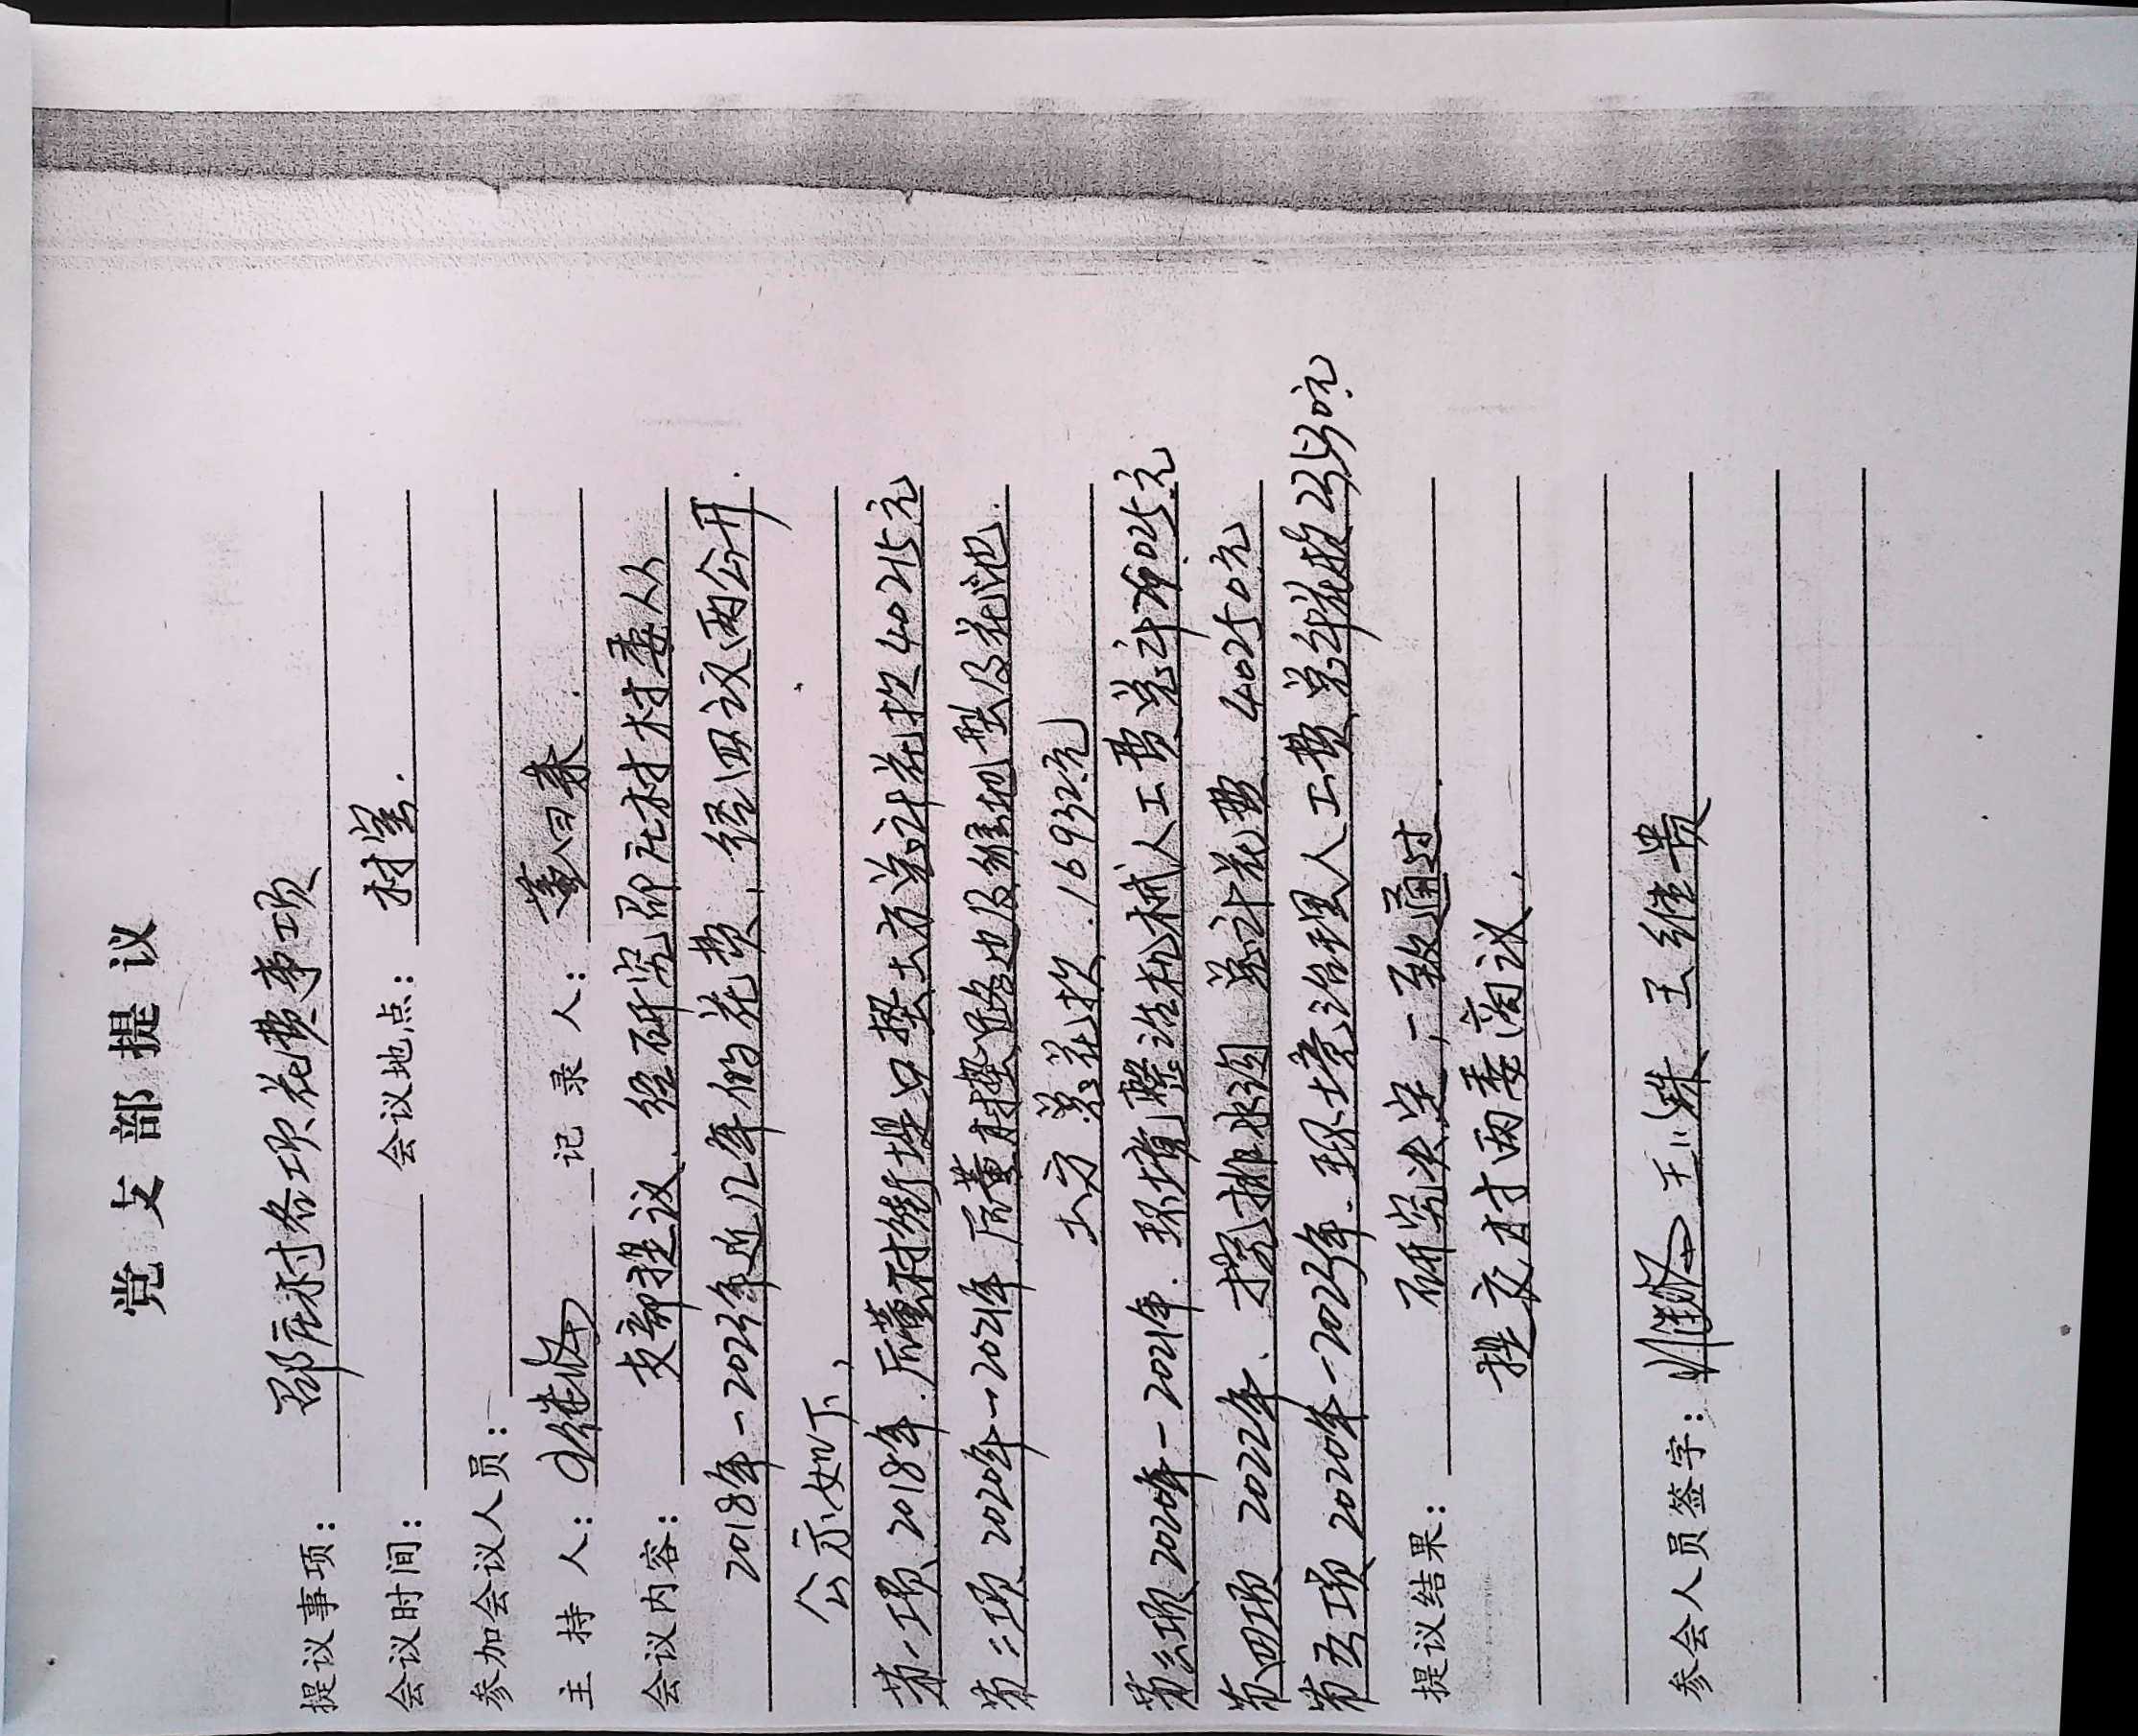 党支部提议
提议事项: 邵庄村各项花费事项
会议时间: 会议地点: 村室.
参加会议人员:
主持人: 记录人: 董回来.
会议内容: 支部提议、经研究邵庄村村委从
2018年-2023年近几年的花费, 经四议两公开.
公示如下,
第一项 2018年. 后董村街堤口垫土方总计花款40215元
第二项 2020年-2021年 后董村垫路边及維地型及花池.
土方总花款. 16932元
第三项 2020年-2021年. 环境整洁机械人工费总计 025元
第四项 2022年、挖排水沟 总计花费 40250元
第五项 2020年-2023年. 环境治理人工费总计花款23530元
提议结果: 研究决定, 一致通过.
提交村两委商议.
参会人员签字: 王继贵